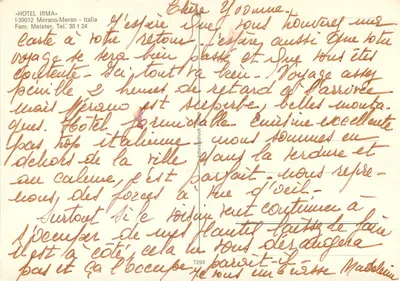 «HOTEL IRMA»
I-39012 Merano-Meran - Italia
Fam. Meister, Tel. 30124
Chère Yvonne -
J'espère que vous trouverez une
carte à votre retour - J'espère aussi que votre
voyage se sera bien passé et que vous êtes
contente - Ici tout va bien - Voyage assez
pénible 2 heures de retard à l'arrivée
mais Mérano est superbe, belles monta-
gnes. Hôtel formidable cuisine excellente
pas trop italienne - nous sommes en
dehors de la ville dans la verdure et
au calme, c'est parfait - nous repre-
nons des forces à vue d'œil -
Surtout si le voisin veut continuer à
s'occuper de mes plantes laissez le faire
il est à côté, cela ne vous dérangera
pas et ça l'occupe
7294
Je vous embrasse Madeleine